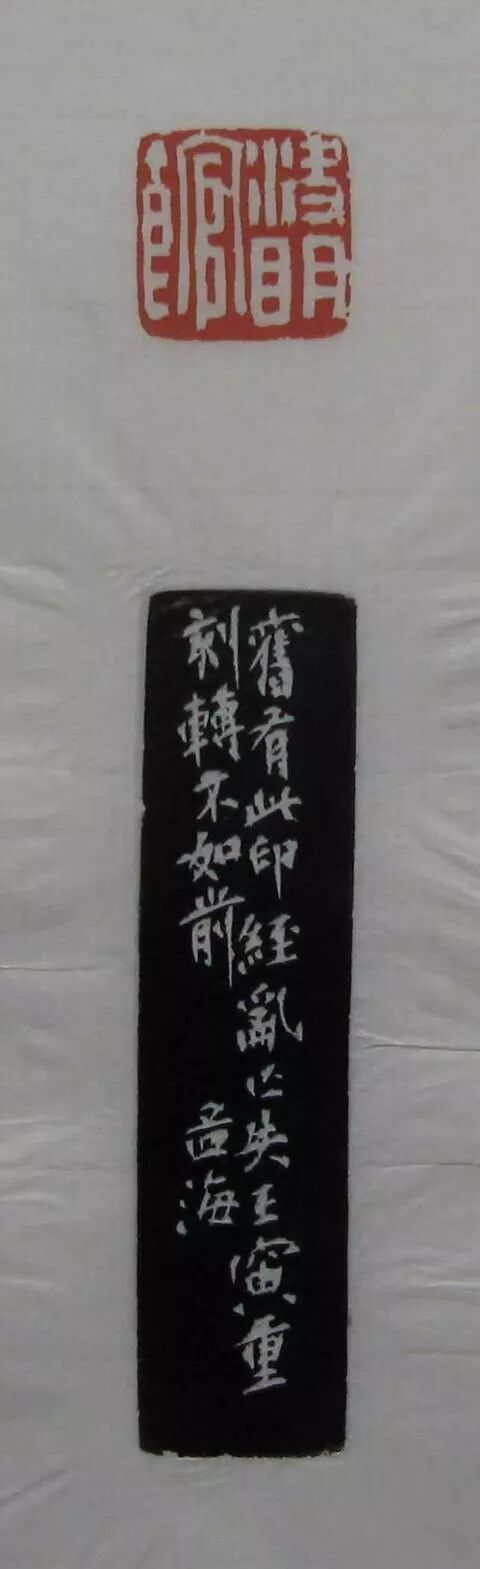 決明館
舊有此印經亂亡失壬寅重
刻轉不如前 孟海